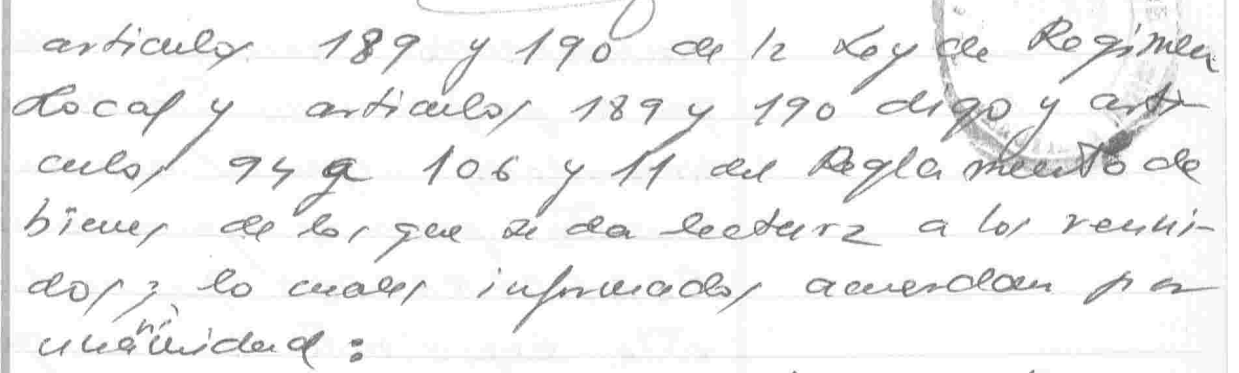 articulos 189 y 190 de la Ley de Regimen
Local y articulos 189 y 190 digo y arti-
culos 94 a 106 y 11 del Reglamento de
bienes de los que se da lectura a los reuni-
dos; lo cuales informados acuerdan por
unanimidad: